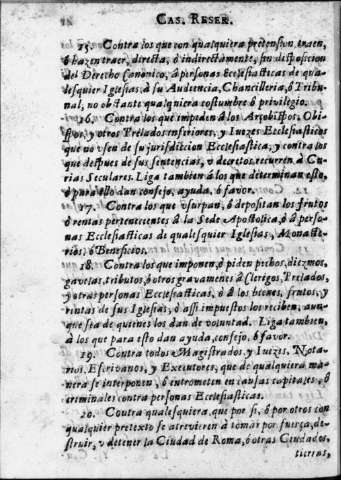 CAS. RESER.
15. Contra los que con qualquiera pretension traen,
ò hazen traer, directa, ò indirectamente, sin disposicion
del Derecho Canonico, à personas Ecclesiasticas de qua-
lesquier Iglesias, à su Audiencia, Chancilleria, ò Tribu-
nal, no obstante qualquiera costumbre ò privilegio.
16. Contra los que impiden à los Arçobispos, Obi-
spos, y otros Prelados inferiores, y Iuezes Ecclesiasticos
que no vsen de su jurisdicion Ecclesiastica, y contra los
que despues de sus sentencias, ò decretos recurrẽ à Cu-
rias Seculares. Liga tambien à los que determinan esto,
ò para ello dan consejo, ayuda, ò favor.
17. Contra los que vsurpan, ò depositan los frutos
ò rentas pertenecentes à la Sede Apostolica, ò à perso-
nas Ecclesiasticas de qualesquier Iglesias, Monaste-
rios, ò Beneficios.
18. Contra los que imponen, ò piden pechos, diezmos,
gavelas, tributos, ò otros gravamenes à Clerigos, Prelados,
y otras personas Ecclesiasticas, ò à los bienes, frutos, y
rintas de sus Iglesias, ò assi impuestos los reciben, aun-
que sea de quienes los dan de voluntad. Liga tambien,
à los que para esto dan ayuda, consejo, ò favor.
19. Contra todos Magistrados, y Iuizes, Nota-
rios, Escrivanos, y Executores, que de qualquiera ma-
nera se interponen, ò entrometen en causas capitales, ò
criminales contra personas Ecclesiasticas.
20. Contra qualesquiera, que por si, ò por otros con
qualquier pretexto se atrevieren à tomar por fuerça, de-
struir, y detener la Ciudad de Roma, ò otras Ciudades,
tierras,